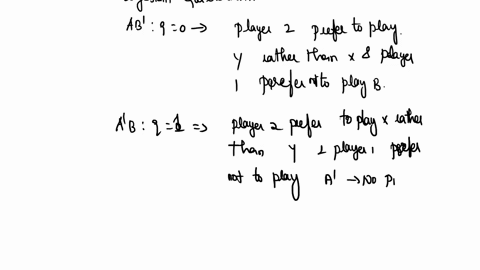 AB' : q = 0 → player 2 prefer to play.
Y rather than x & player
1 prefer not to play B.
A'B : q = 1 => player 2 prefer to play x rather
than Y & player 1 prefer
not to play A' → No P1